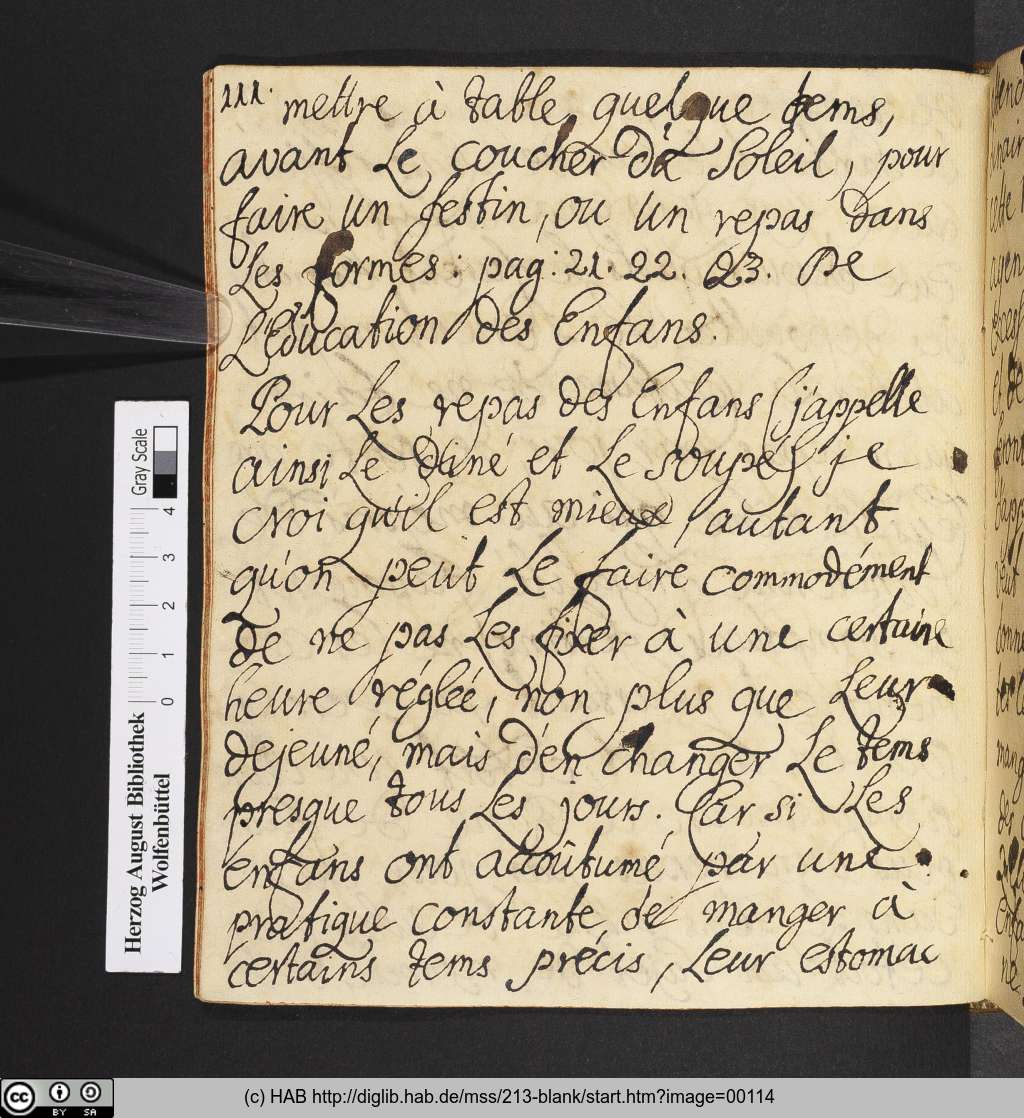 111. mettre à table, quelque tems,
avant Le coucher du Soleil, pour
faire un festin, ou un repas dans
Les formes: pag: 21. 22. 23. De
L'éducation des Enfans.
Pour Les repas des Enfans (j'appelle
ainsi Le diné et Le soupé) je
croi qu'il est mieux, autant
qu'on peut Le faire commodément
de ne pas Les fixer à une certaine
heure régleé, non plus que Leur
dejeuné, mais d'en changer Le tems
presque tous Les jours. Car si Les
enfans ont accoûtumé par une
pratique constante, de manger à
certains tems précis, Leur estomac
Herzog August Bibliothek
Wolfenbüttel
0 1 2 3 4
Gray Scale
cc BY SA
(c) HAB http://diglib.hab.de/mss/213-blank/start.htm?image=00114